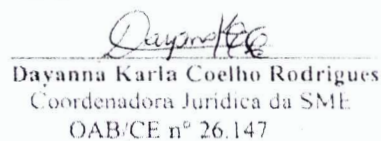 Dayanna Karla Coelho Rodrigues
Coordenadora Jurídica da SME
OAB/CE nº 26.147